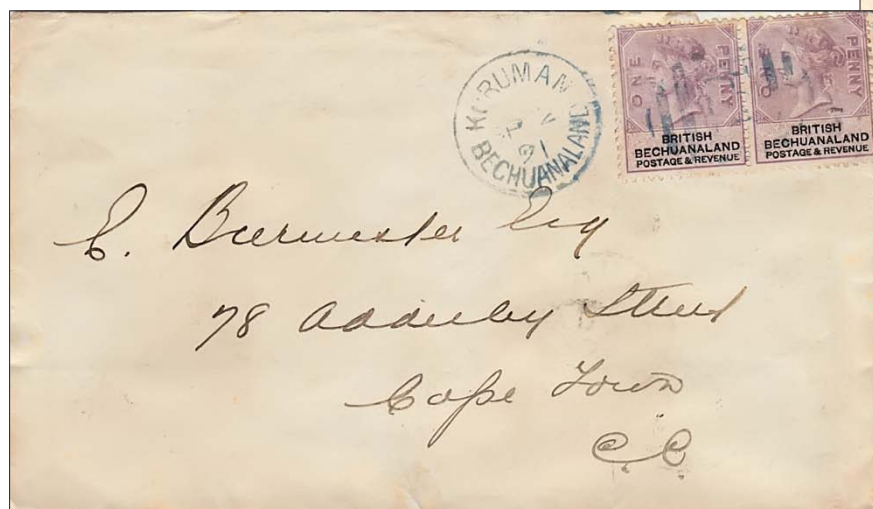 KURUMAN
91
BECHUANALAND
ONE PENNY
BRITISH
BECHUANALAND
POSTAGE & REVENUE
ONE PENNY
BRITISH
BECHUANALAND
POSTAGE & REVENUE
E. Burmester Esq
78 Adderley Street
Cape Town
C.C.